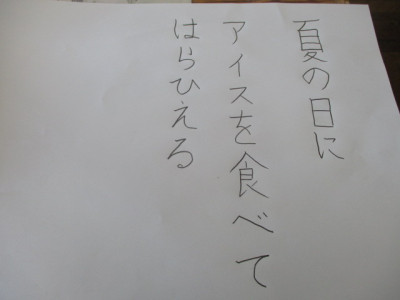 夏の日に
アイスを食べて
はらひえる